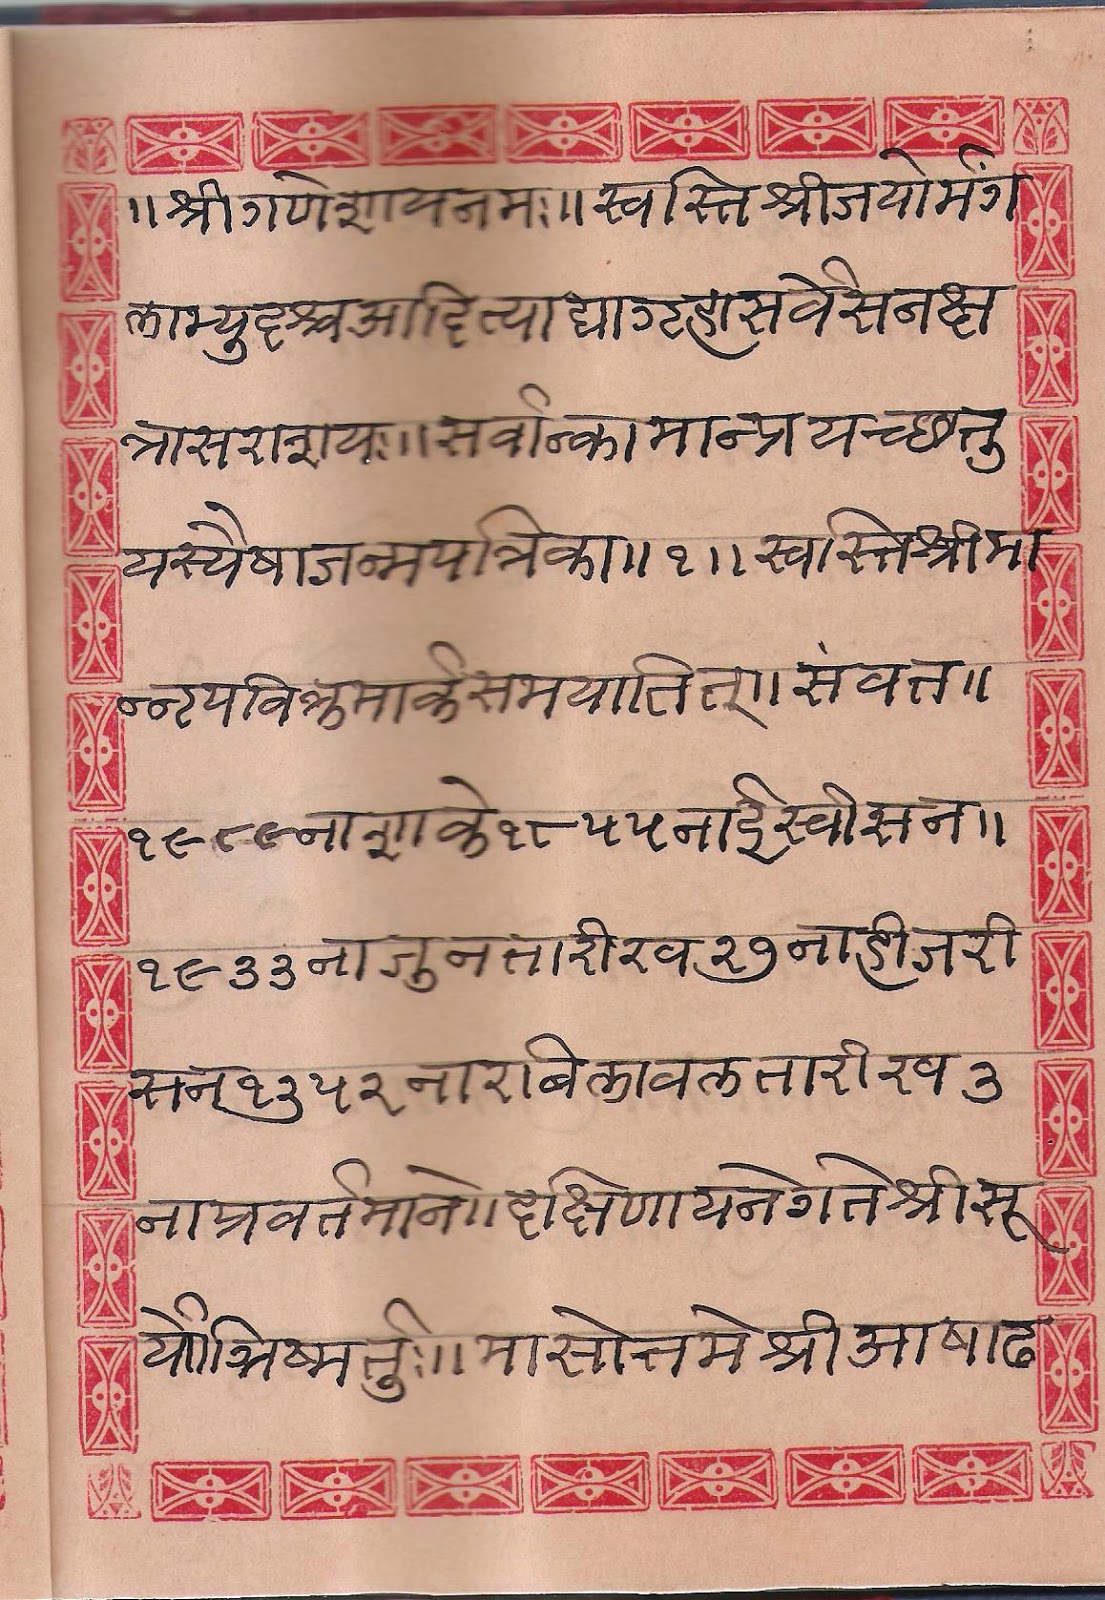 ॥श्रीगणेशायनमः॥स्वस्तिश्रीजयोर्मंग
लाभ्युदृश्चआदित्याद्याग्रहासर्वेसनक्ष
त्रासराशयः॥सर्वान्कामान्प्रयच्छन्तु
यस्यैषाजन्मपत्रिका॥१॥स्वस्तिश्रीमा
न्नृपविक्रमार्कसमयातित्॥संवत्त॥
१९८९नाशाके१८५५नाईस्वीसन॥
१९३३नाजुनतारीख२७नाहीजरी
सन्१३५२नारबिलावलतारीख३
नाप्रवर्तमाने॥दक्षिणायनेगतेश्रीसू
र्योग्रिष्मर्त्तुः॥मासोत्तमेश्रीआषाढ